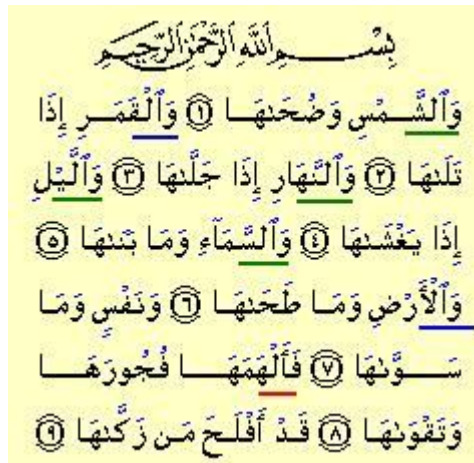 بِسْمِ اللَّهِ الرَّحْمَٰنِ الرَّحِيمِ
وَٱلشَّمْسِ وَضُحَىٰهَا ١ وَٱلْقَمَرِ إِذَا
تَلَىٰهَا ٢ وَٱلنَّهَارِ إِذَا جَلَّىٰهَا ٣ وَٱلَّيْلِ
إِذَا يَغْشَىٰهَا ٤ وَٱلسَّمَآءِ وَمَا بَنَىٰهَا ٥
وَٱلْأَرْضِ وَمَا طَحَىٰهَا ٦ وَنَفْسٍ وَمَا
سَوَّىٰهَا ٧ فَأَلْهَمَهَا فُجُورَهَا
وَتَقْوَىٰهَا ٨ قَدْ أَفْلَحَ مَن زَكَّىٰهَا ٩